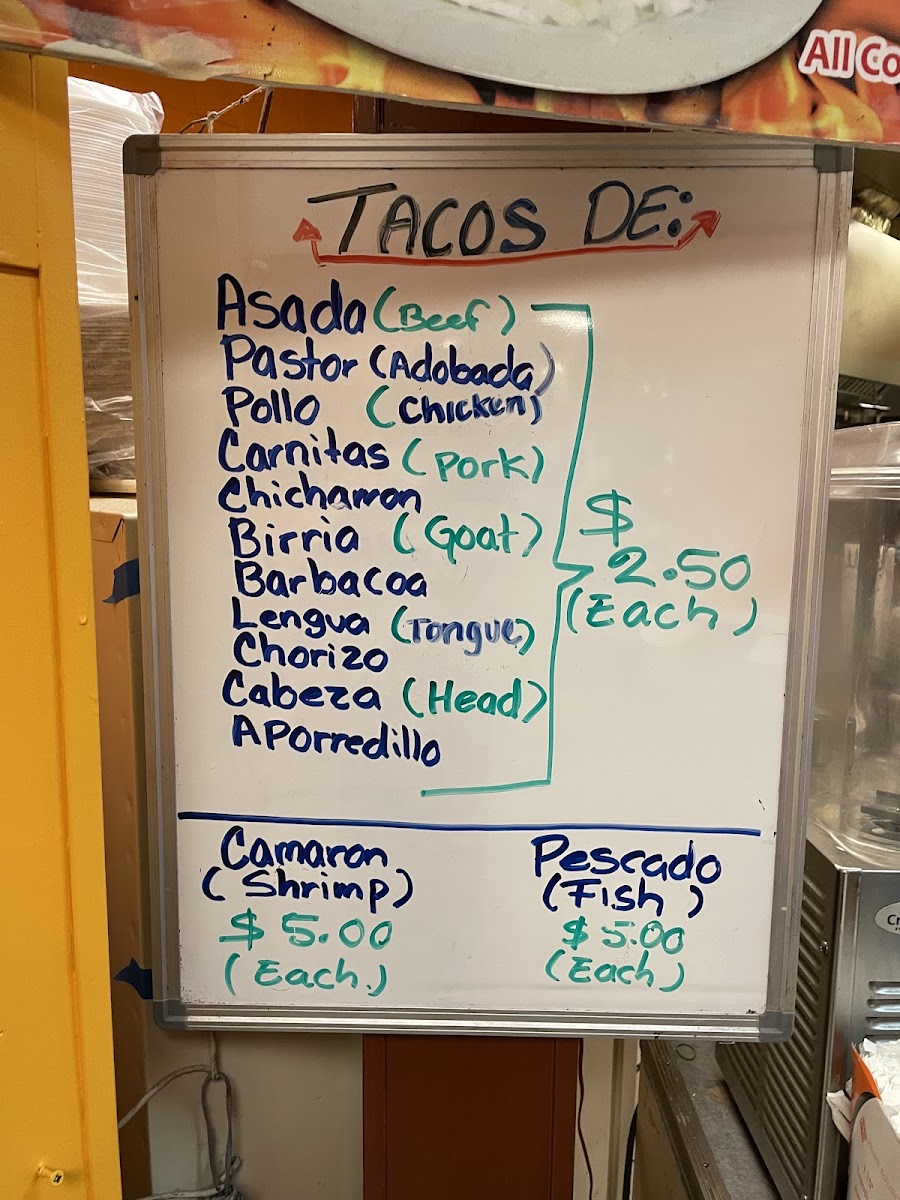 All Co
TACOS DE:
Asada (Beef)
Pastor (Adobada)
Pollo (Chicken)
Carnitas (Pork)
Chicharron
Birria (Goat)
Barbacoa
Lengua (Tongue)
Chorizo
Cabeza (Head)
APorredillo
$
2.50
(Each)
Camaron
(Shrimp)
$5.00
(Each)
Pescado
(Fish)
$5.00
(Each)